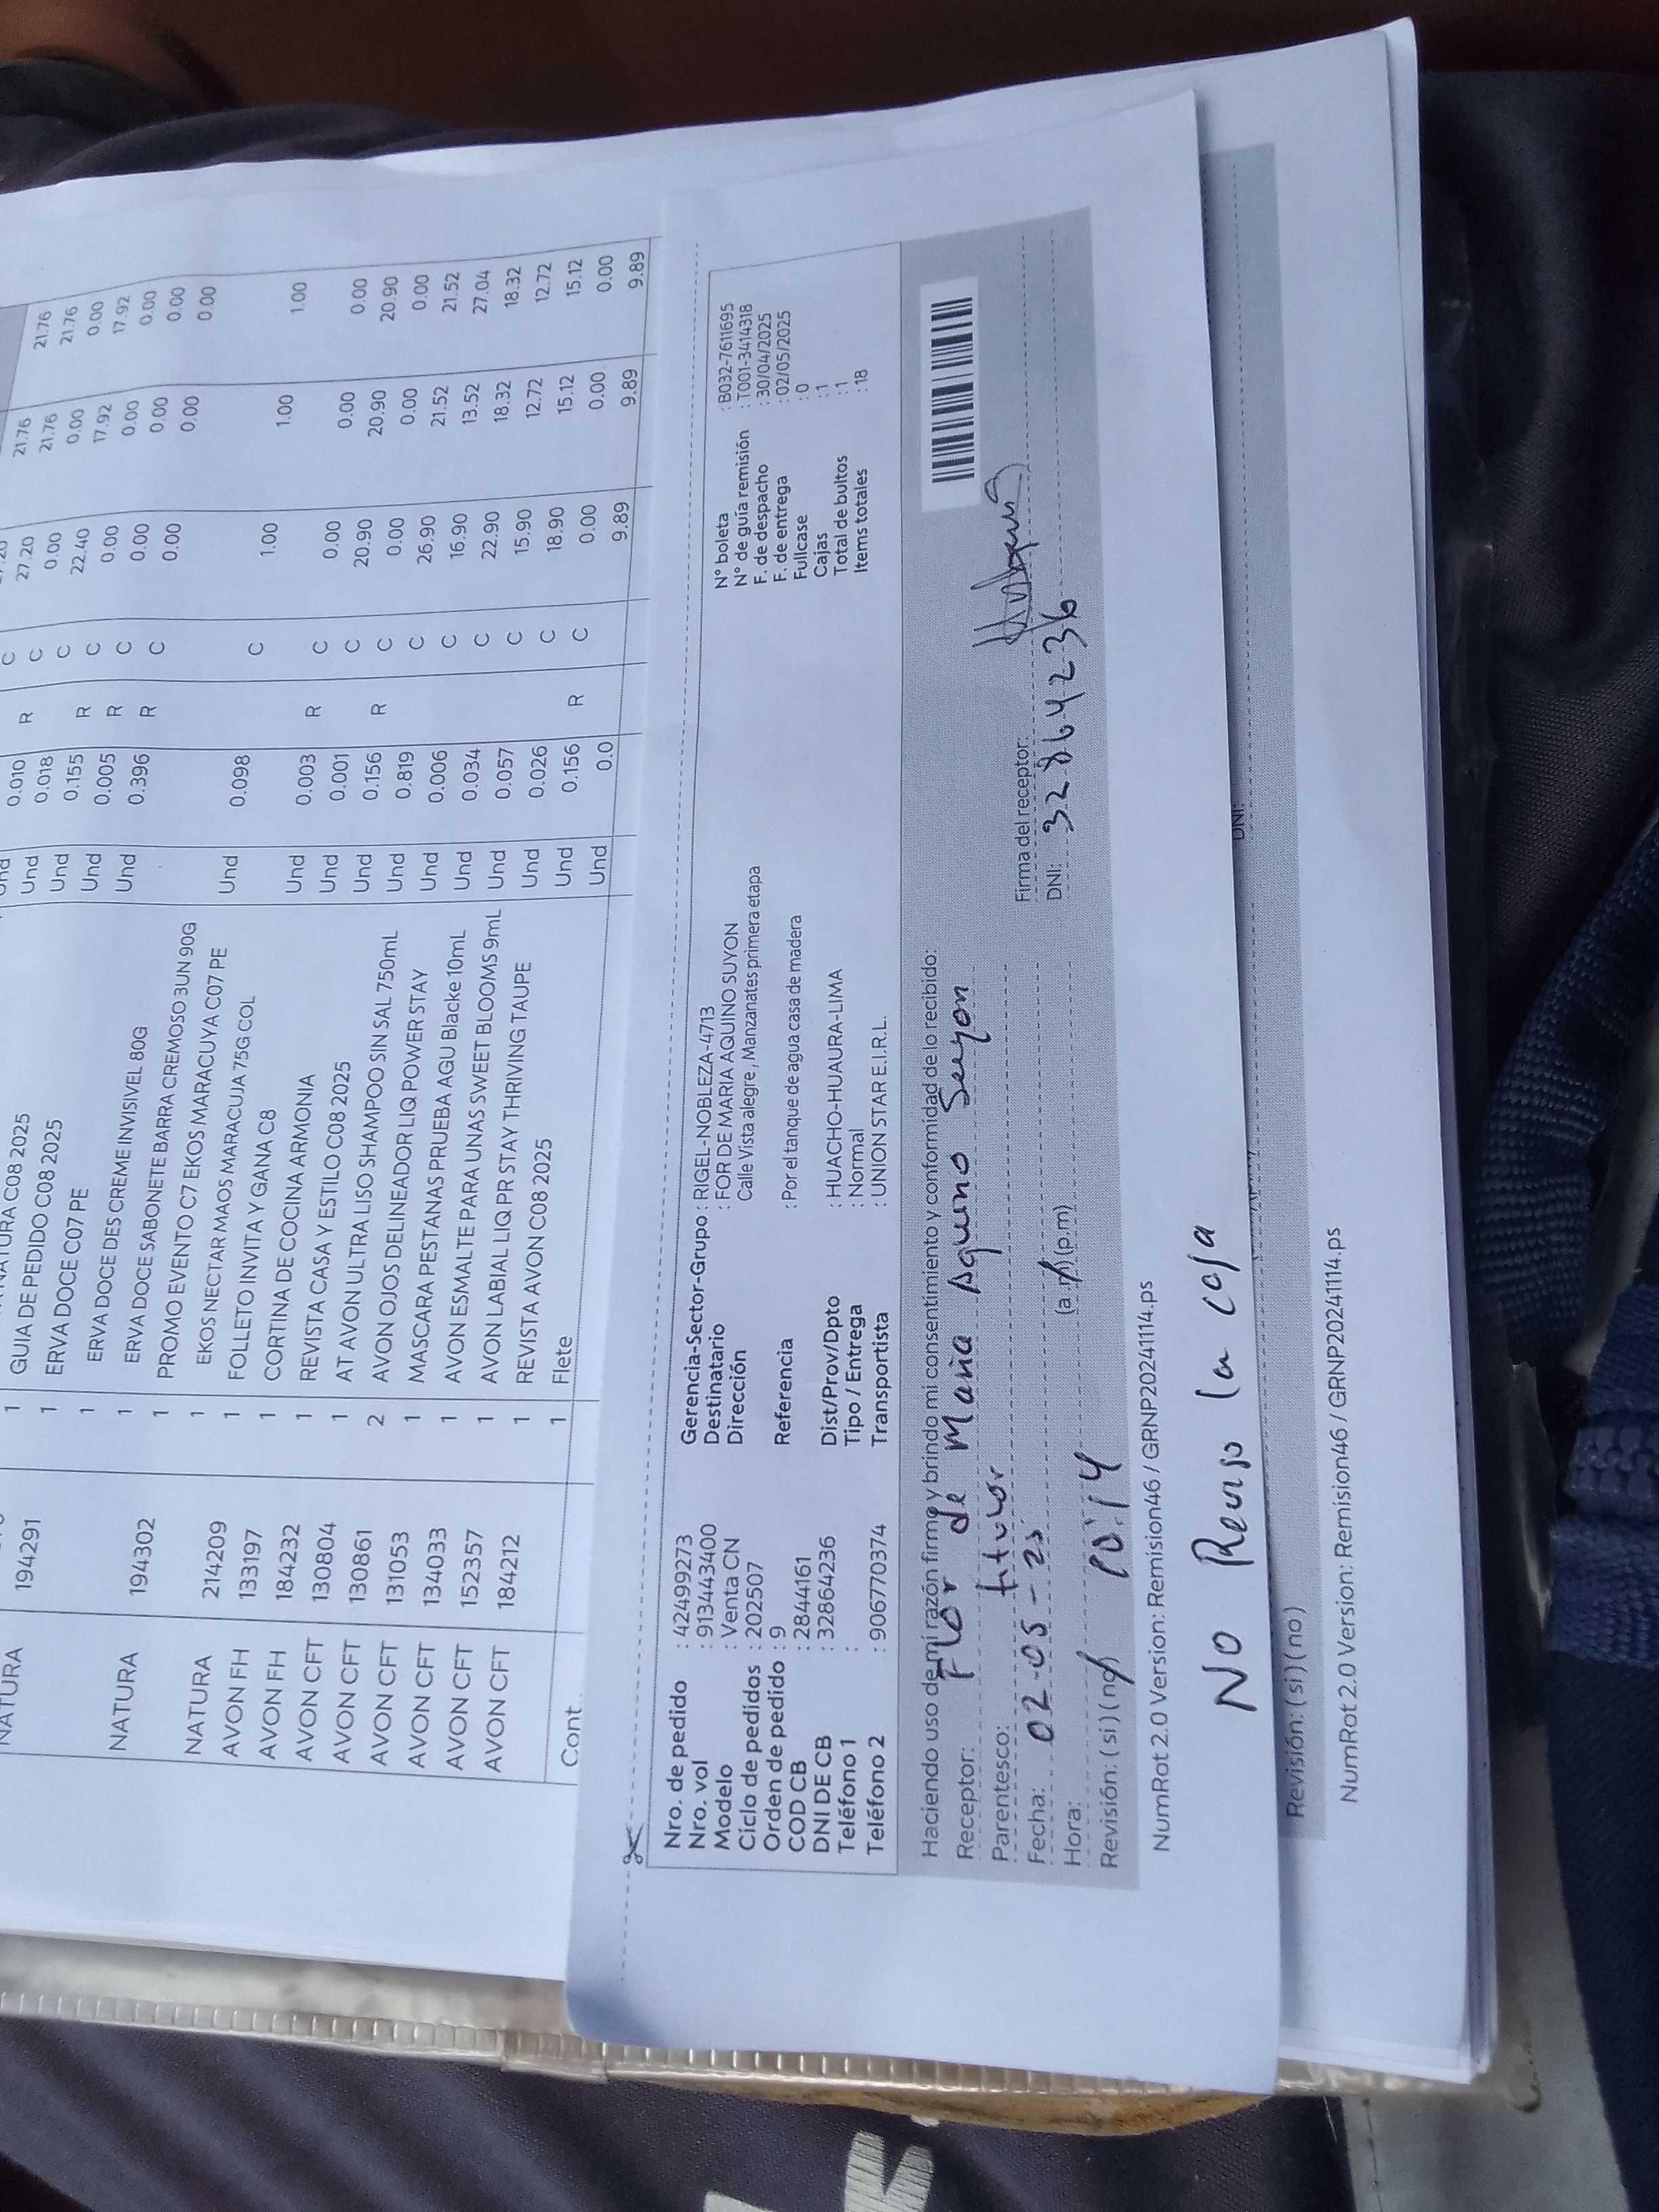 NATURA 194291 1 GUIA DE PEDIDO C08 2025 Und 0.010 R C 27.20 21.76 21.76
1 ERVA DOCE C07 PE Und 0.018 C 0.00 21.76 21.76
1 ERVA DOCE DES CREME INVISIVEL 80G Und 0.155 R C 22.40 0.00 0.00
NATURA 194302 1 ERVA DOCE SABONETE BARRA CREMOSO 3UN 90G Und 0.005 R C 0.00 17.92 17.92
1 PROMO EVENTO C7 EKOS MARACUYA C07 PE Und 0.396 R C 0.00 0.00 0.00
NATURA 214209 1 EKOS NECTAR MAOS MARACUJA 75G COL 0.00 0.00 0.00
AVON FH 133197 1 FOLLETO INVITA Y GANA C8 Und 0.098 C 0.00 0.00
AVON FH 184232 1 CORTINA DE COCINA ARMONIA 1.00 1.00 1.00
AVON CFT 130804 1 REVISTA CASA Y ESTILO C08 2025 Und 0.003 R C 0.00 0.00 0.00
AVON CFT 130861 1 AT AVON ULTRA LISO SHAMPOO SIN SAL 750mL Und 0.001 C 20.90 20.90 20.90
AVON CFT 131053 2 AVON OJOS DELINEADOR LIQ POWER STAY Und 0.156 R C 0.00 0.00 0.00
AVON CFT 134033 1 MASCARA PESTANAS PRUEBA AGU Blacke 10mL Und 0.819 C 26.90 21.52 21.52
AVON CFT 152357 1 AVON ESMALTE PARA UNAS SWEET BLOOMS 9mL Und 0.006 C 16.90 13.52 27.04
AVON CFT 184212 1 AVON LABIAL LIQ PR STAY THRIVING TAUPE Und 0.034 C 22.90 18.32 18.32
1 REVISTA AVON C08 2025 Und 0.057 C 15.90 12.72 12.72
Und 0.026 C 18.90 15.12 15.12
Und 0.156 R C 0.00 0.00 0.00
Cont 1 Flete Und 0.0 9.89 9.89 9.89
Nro. de pedido : 42499273 Gerencia-Sector-Grupo : RIGEL-NOBLEZA-4713 N° boleta : B032-7611695
Nro. vol : 913443400 Destinatario : FOR DE MARIA AQUINO SUYON N° de guía remisión : T001-3414318
Modelo : Venta CN Dirección Calle Vista alegre , Manzanates primera etapa F. de despacho : 30/04/2025
Ciclo de pedidos : 202507 F. de entrega : 02/05/2025
Orden de pedido : 9 Referencia : Por el tanque de agua casa de madera Fullcase : 0
COD CB : 2844161 Cajas : 1
DNI DE CB : 32864236 Dist/Prov/Dpto : HUACHO-HUAURA-LIMA Total de bultos : 1
Teléfono 1 : Tipo / Entrega : Normal Items totales : 18
Teléfono 2 : 906770374 Transportista : UNION STAR E.I.R.L.
Haciendo uso de mi razón firmo y brindo mi consentimiento y conformidad de lo recibido:
Receptor: Flor de Maria Aquino Suyon
Parentesco: titular Firma del receptor:
Fecha: 02-05-25 DNI: 32864236
Hora: 10:14 (a.m) (p.m)
Revisión: ( si ) ( no )
NumRot 2.0 Version: Remision46 / GRNP20241114.ps
NO Reviso la caja
DNI:
Revisión: ( si ) ( no )
NumRot 2.0 Version: Remision46 / GRNP20241114.ps